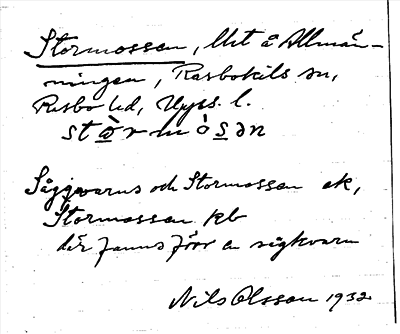 Stormossen, Utt å Allmän-
ningen, Rasbokils sn,
Rasbo hd, Upps. l.
stòrmòsən
Såggvarns och Stormossen ek,
Stormossen kb
där fanns förr en sågkvarn
Nils Olsson 1932